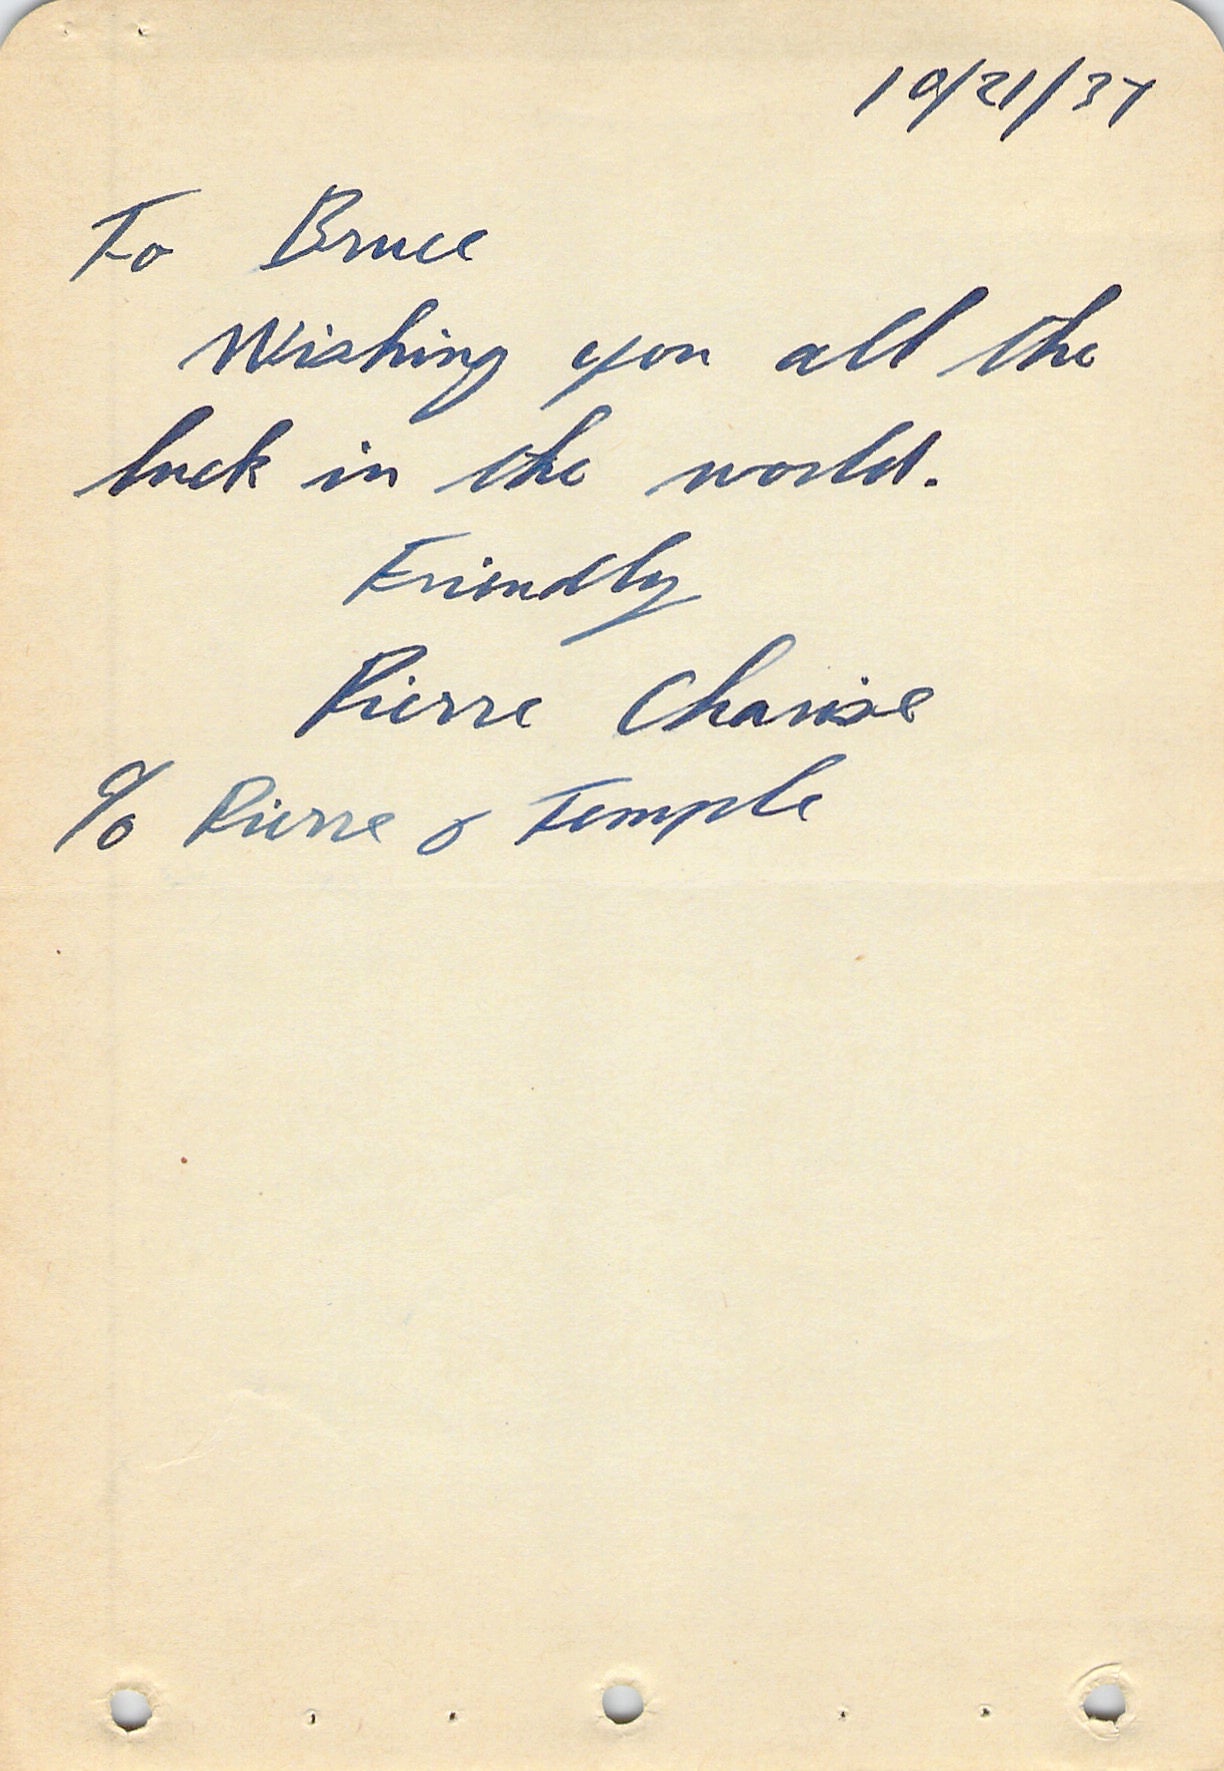 10/21/37
To Bruce
Wishing you all the
luck in the world.
Friendly
Pierre Charise
c/o Pierre & Temple